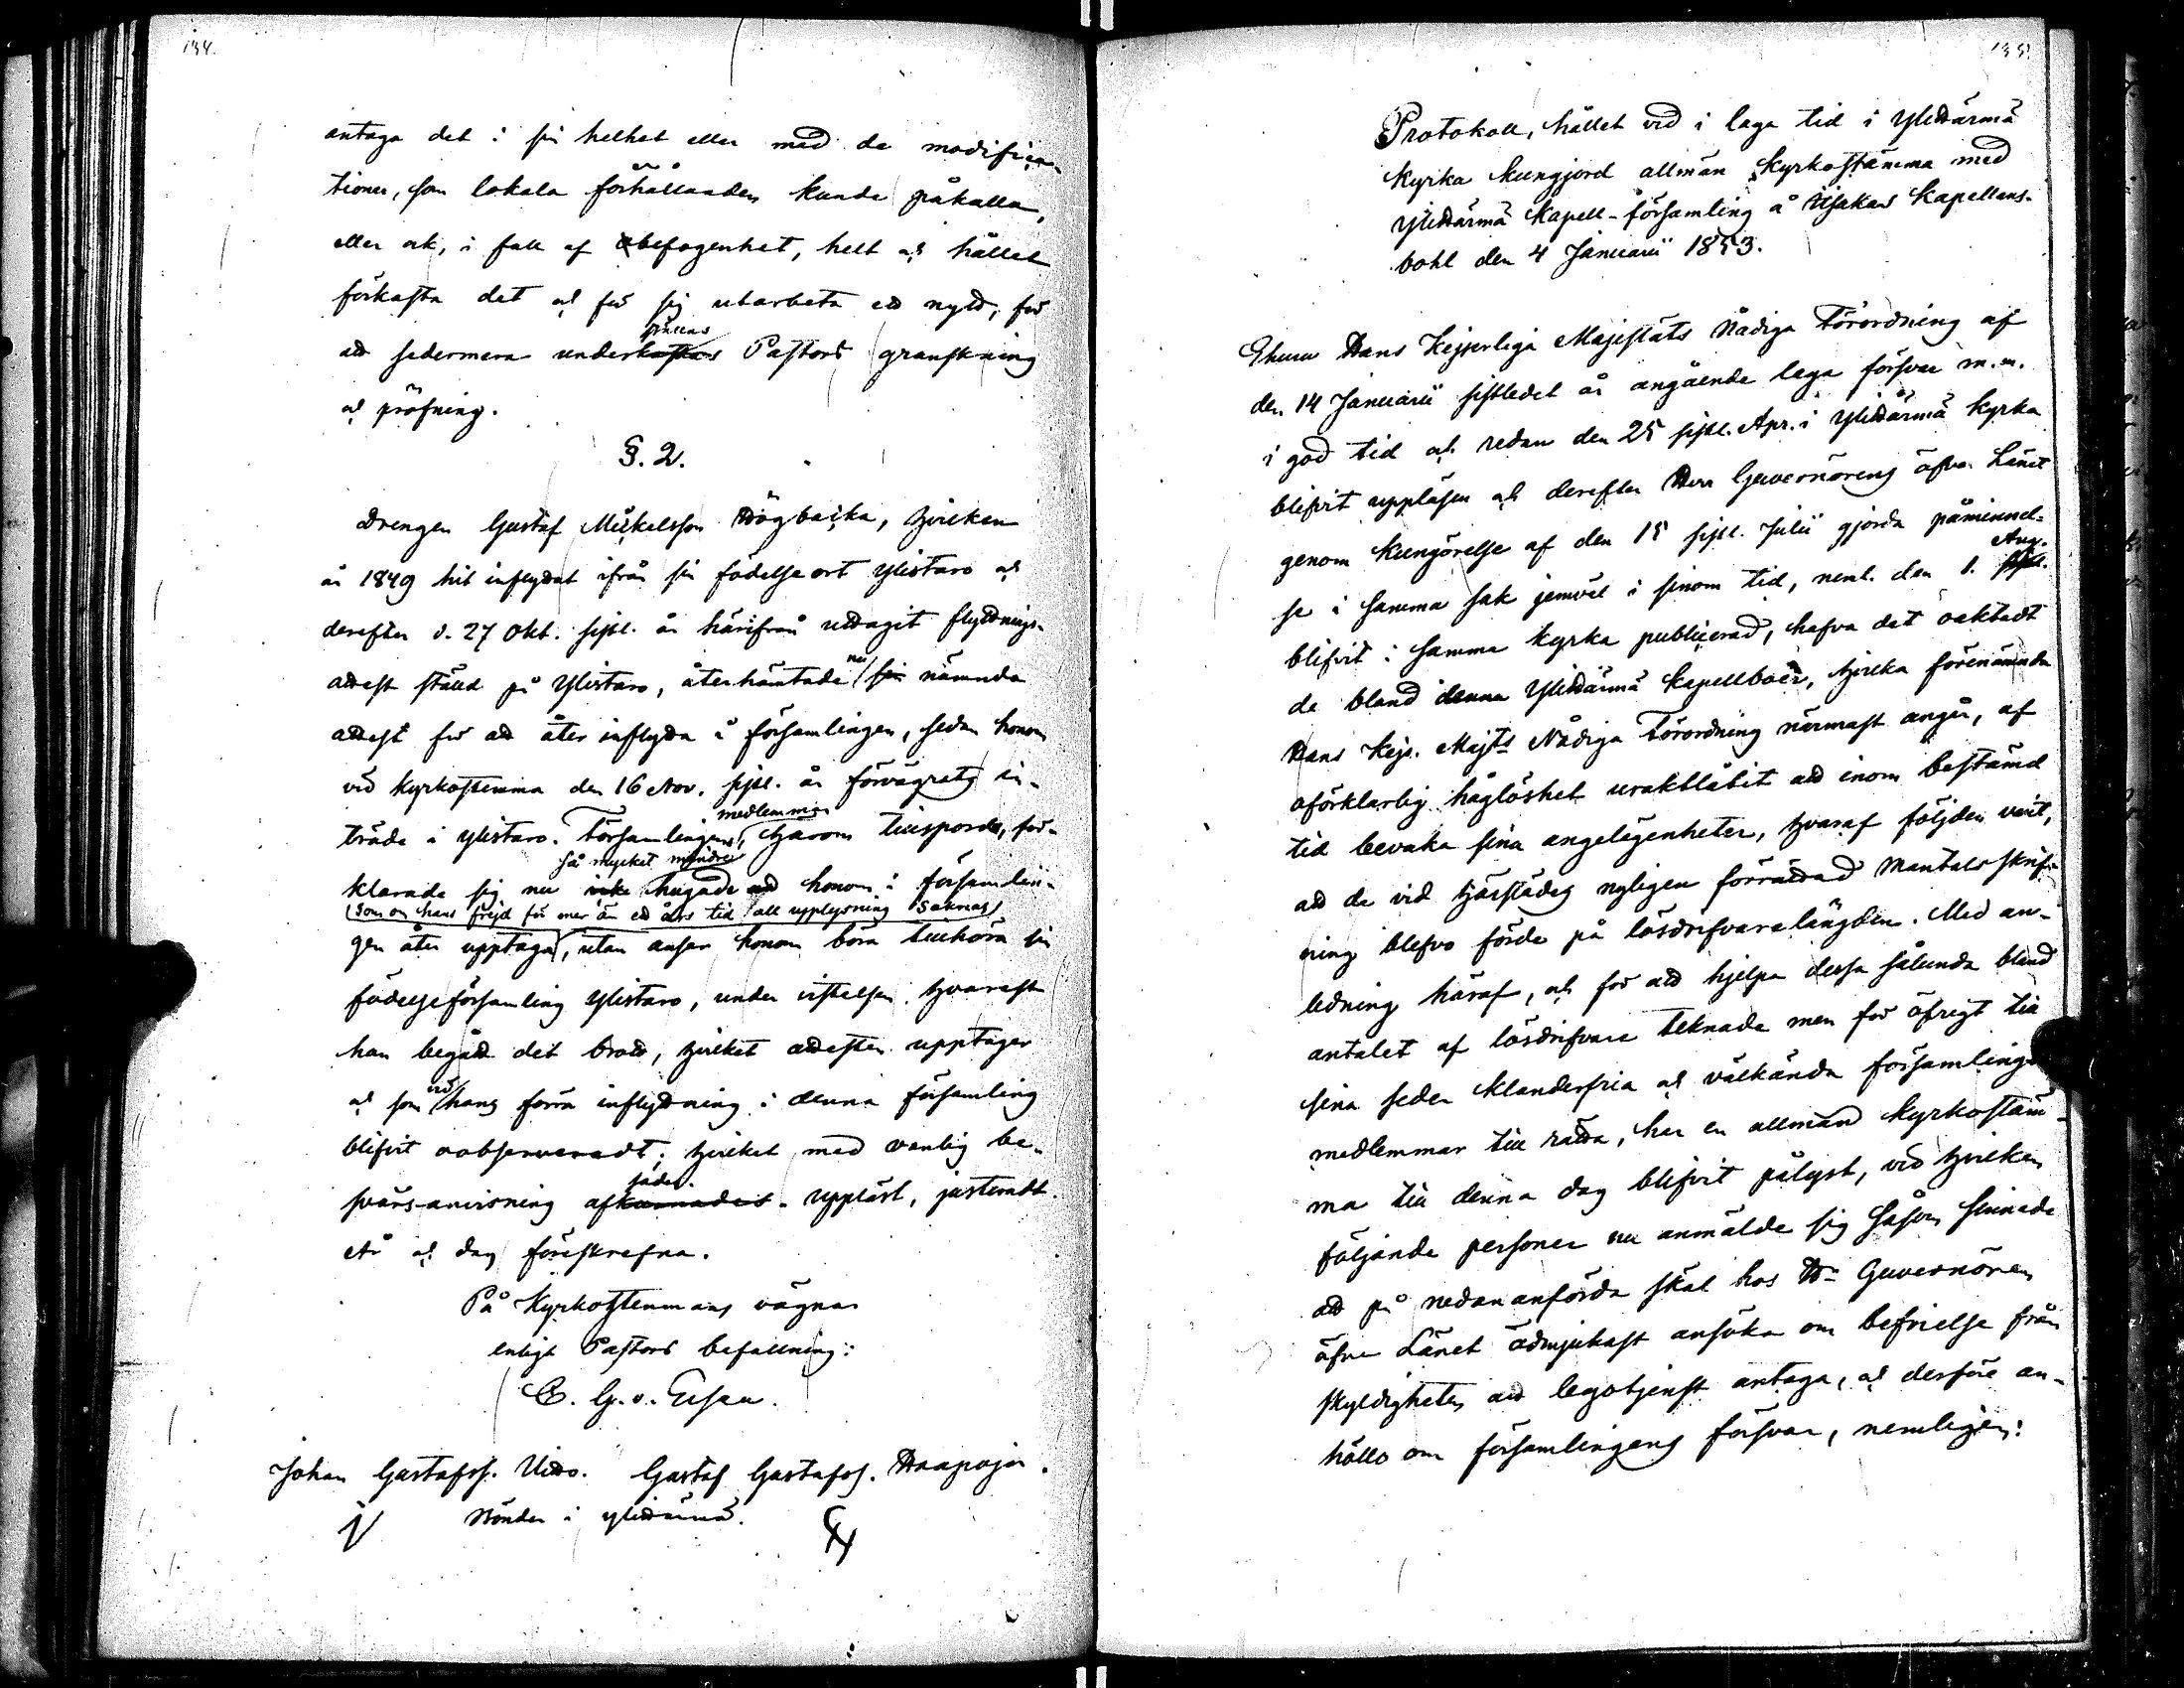 134.
antaga det i sin helhet eller med de modifica-
tioner, som lokala förhållanden kunde påkalla,
eller ock, i fall af obefogenhet, helt och hållet
förkasta det och för sig utarbeta ett nytt, för
att sedermera underställas Pastors granskning
och pröfning.
§. 2.
Drengen Gustaf Mickelsson Högbacka, hvilken
år 1849 hit inflyttat ifrån sin födelseort Ylistaro och
derefter d. 27 Okt. sistl. år härifrån uttagit flyttnings-
attest ställd på Ylistaro, återhämtade nu sin nämnda
attest för att åter inflytta i församlingen, sedan honom
vid kyrkostemma den 16 Nov. sistl. år förvägrats in-
träde i Ylistaro. Församlingens medlemmar, härom tillsporde, för-
klarade sig nu så mycket mindre hugade att honom i församlin-
(som om hans frejd för mer än ett års tid all upplysning saknas)
gen åter upptaga, utan anser honom böra tillhöra sin
födelseförsamling Ylistaro, under vistelsen hvarest
han begått det brott, hvilket attesten upptager
och som vid hans förra inflyttning i denna församling
blifvit oobserveradt; hvilket med vanlig be-
svärs-anvisning afsades. Uppläst, justeradt.
År och dag föreskrefna.
På Kyrkostemmans vägnar
enligt Pastors befallning:
C. G. v. Essen.
Johan Gustafss. Uitto. Gustaf Gustafss. Haapoja.
Bönder i Ylihärmä.
135.
Protokoll, hållet vid i laga tid i Ylihärmä
kyrka kungjord allmän Kyrkostämma med
Ylihärmä Kapell-församling å Kapellans-
bohl den 4 Januarii 1853.
Ehuru Hans Kejserliga Majestäts Nådiga Förordning af
den 14 Januarii sistledet år angående laga försvar m.m.
i god tid och redan den 25 sistl. Apr. i Ylihärmä kyrka
blifvit uppläsen och derefter Herr Guvernörens öfver Länet
genom Kungörelse af den 15 sistl. Julii gjorda påminnel-
se i samma sak jemväl i sinom tid, neml. den 1. Aug.
blifvit i samma kyrka publicerad, hafva det oaktadt
de bland denna Ylihärmä kapellboer, hvilka förenämnda
Hans Kejs. Majts Nådiga Förordning närmast angår, af
oförklarlig håglöshet uraktlåtit att inom bestämd
tid bevaka sina angelägenheter, hvaraf följden varit,
att de vid härstädes nyligen förrättad Mantalsskrif-
ning blefvo förde på lösdrifvarelängden. Med an-
ledning häraf, och för att hjelpa dessa sålunda bland
antalet af lösdrifvare teknade men för öfrigt till
sina seder klanderfria och välkända församlings
medlemmar till rätta, har en allmän kyrkostäm-
ma till denna dag blifvit pålyst, vid hvilken
följande personer nu anmälde sig såsom sinnade
att på nedananförda skäl hos Hr Guvernören
öfver Länet ödmjukast ansöka om befrielse från
skyldigheten att legotjenst antaga, och derföre an-
höllo om församlingens försvar, nemligen: